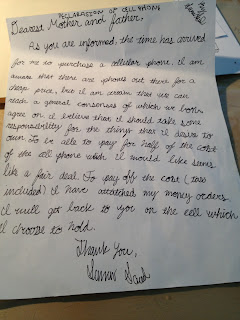 DECLARATION OF CELL PHONE
Dearest Mother and father,
As you are informed, the time has arrived
for me to purchase a cellular phone. I am
aware that there are iphones out there for a
cheap price, but I am certain that we can
reach a general consensus of which we both
agree on. I believe that I should take some
responsibility for the things that I desire to
own. To be able to pay for half of the cost
of the cell phone which I would like seems
like a fair deal. To pay off the cost (tax
included) I have attatched my money orders.
I will get back to you on the cell which
I choose to hold.
Thank You,